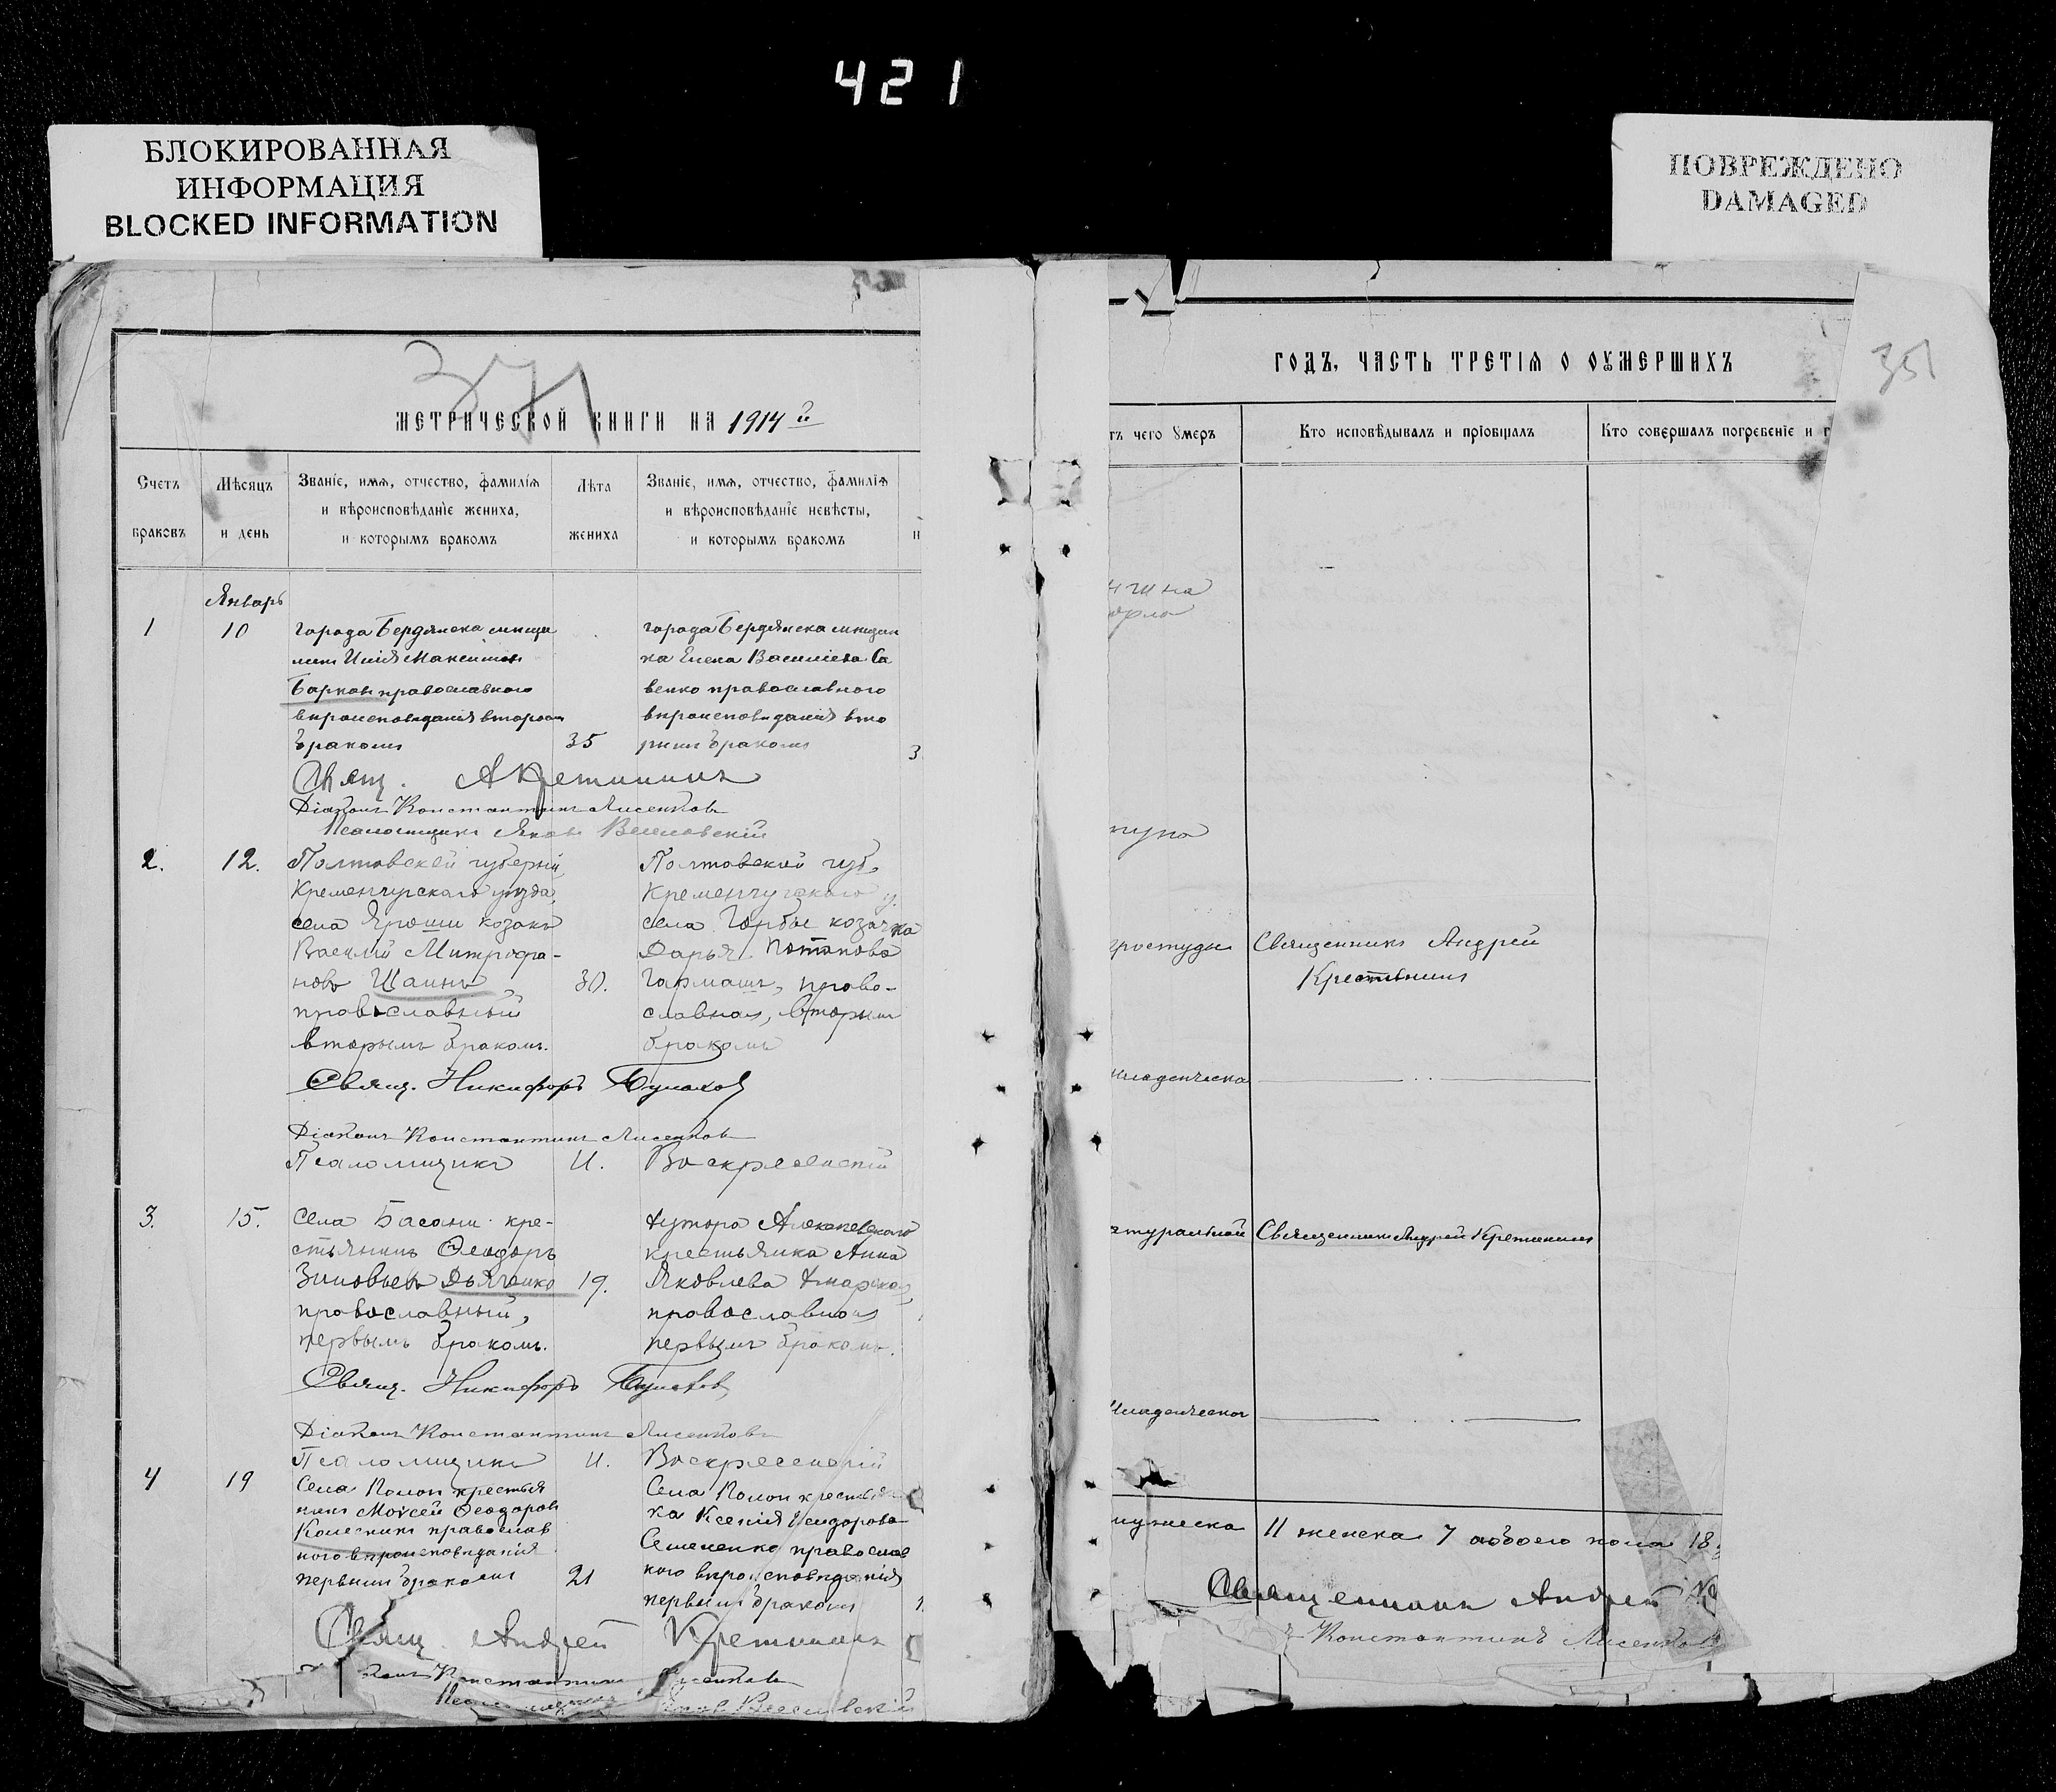 421
БЛОКИРОВАННАЯ
ИНФОРМАЦИЯ
BLOCKED INFORMATION
ПОВРЕЖДЕНО
DAMAGED
371
МЕТРИЧЕСКОЙ КНИГИ НА 1914 й
Счетъ
браковъ
Мѣсяцъ
и день
Званіе, имя, отчество, фамилія
и вѣроисповѣданіе жениха,
и которымъ бракомъ
Лѣта
жениха
Званіе, имя, отчество, фамилія
и вѣроисповѣданіе невѣсты,
и которымъ бракомъ
Январь
1
10
города Бердянска мѣща
нинъ Илія Максимовъ
Барковъ православного
вѣроисповѣданія вторымъ
бракомъ
35
города Бердянска мѣщан
ка Елена Василіева Са
венко православного
вѣроисповѣданія вто
рымъ бракомъ
3
Свящ. А Крестининъ
Діаконъ Константинъ Лисенков
Псаломщикъ Яковъ Веселовскій
2.
12.
Полтавской губерніи
Кременчугскаго уѣзда,
села Яроши козакъ
Василій Митрофа-
новъ Шаинъ
православный
вторымъ бракомъ.
30.
Полтавской губ.
Кременчугскаго у.
села Горбы козачка
Дарья Потапова
Гармашъ, право-
славная, вторым
бракомъ
Свящ. Никифоръ
Діаконъ Константинъ Лисенков
Псаломщикъ И. Воскресенскій
3.
15.
Села Басани кре-
стьянинъ Ѳеодоръ
Зиновьевъ Дьяченко
православный,
первымъ бракомъ.
19.
хутора Алексѣевскаго
крестьянка Анна
Яковлева
православная
первымъ бракомъ.
Свящ. Никифоръ
Діаконъ Константинъ Лисенков
Псаломщикъ И. Воскресенскій
4
19
Села Попом крестья
нинъ Моѵсей Ѳеодоровъ
Колесникъ православ
ного вѣроисповѣданія
первымъ бракомъ
21
Села Попом крестьян
ка Ксенія Исидорова
Семененко православ
ного вѣроисповѣданія
первымъ бракомъ
Свящ. Андрей Крестининъ
Константинъ Лисенков
Псаломщикъ Яковъ Веселовскій
351
ГОДЪ, ЧАСТЬ ТРЕТІЯ О ОУМЕРШИХЪ
тъ чего умеръ
Кто исповѣдывалъ и пріобщалъ
Кто совершалъ погребеніе и г
нгина
орла
простуды
Священникъ Андрей
Крестининъ
младенческа
Священникъ Андрей Крестининъ
младенческог
мужеска 11 женска 7 обоего пола 18
Священникъ Андрей
Константинъ Лисенков